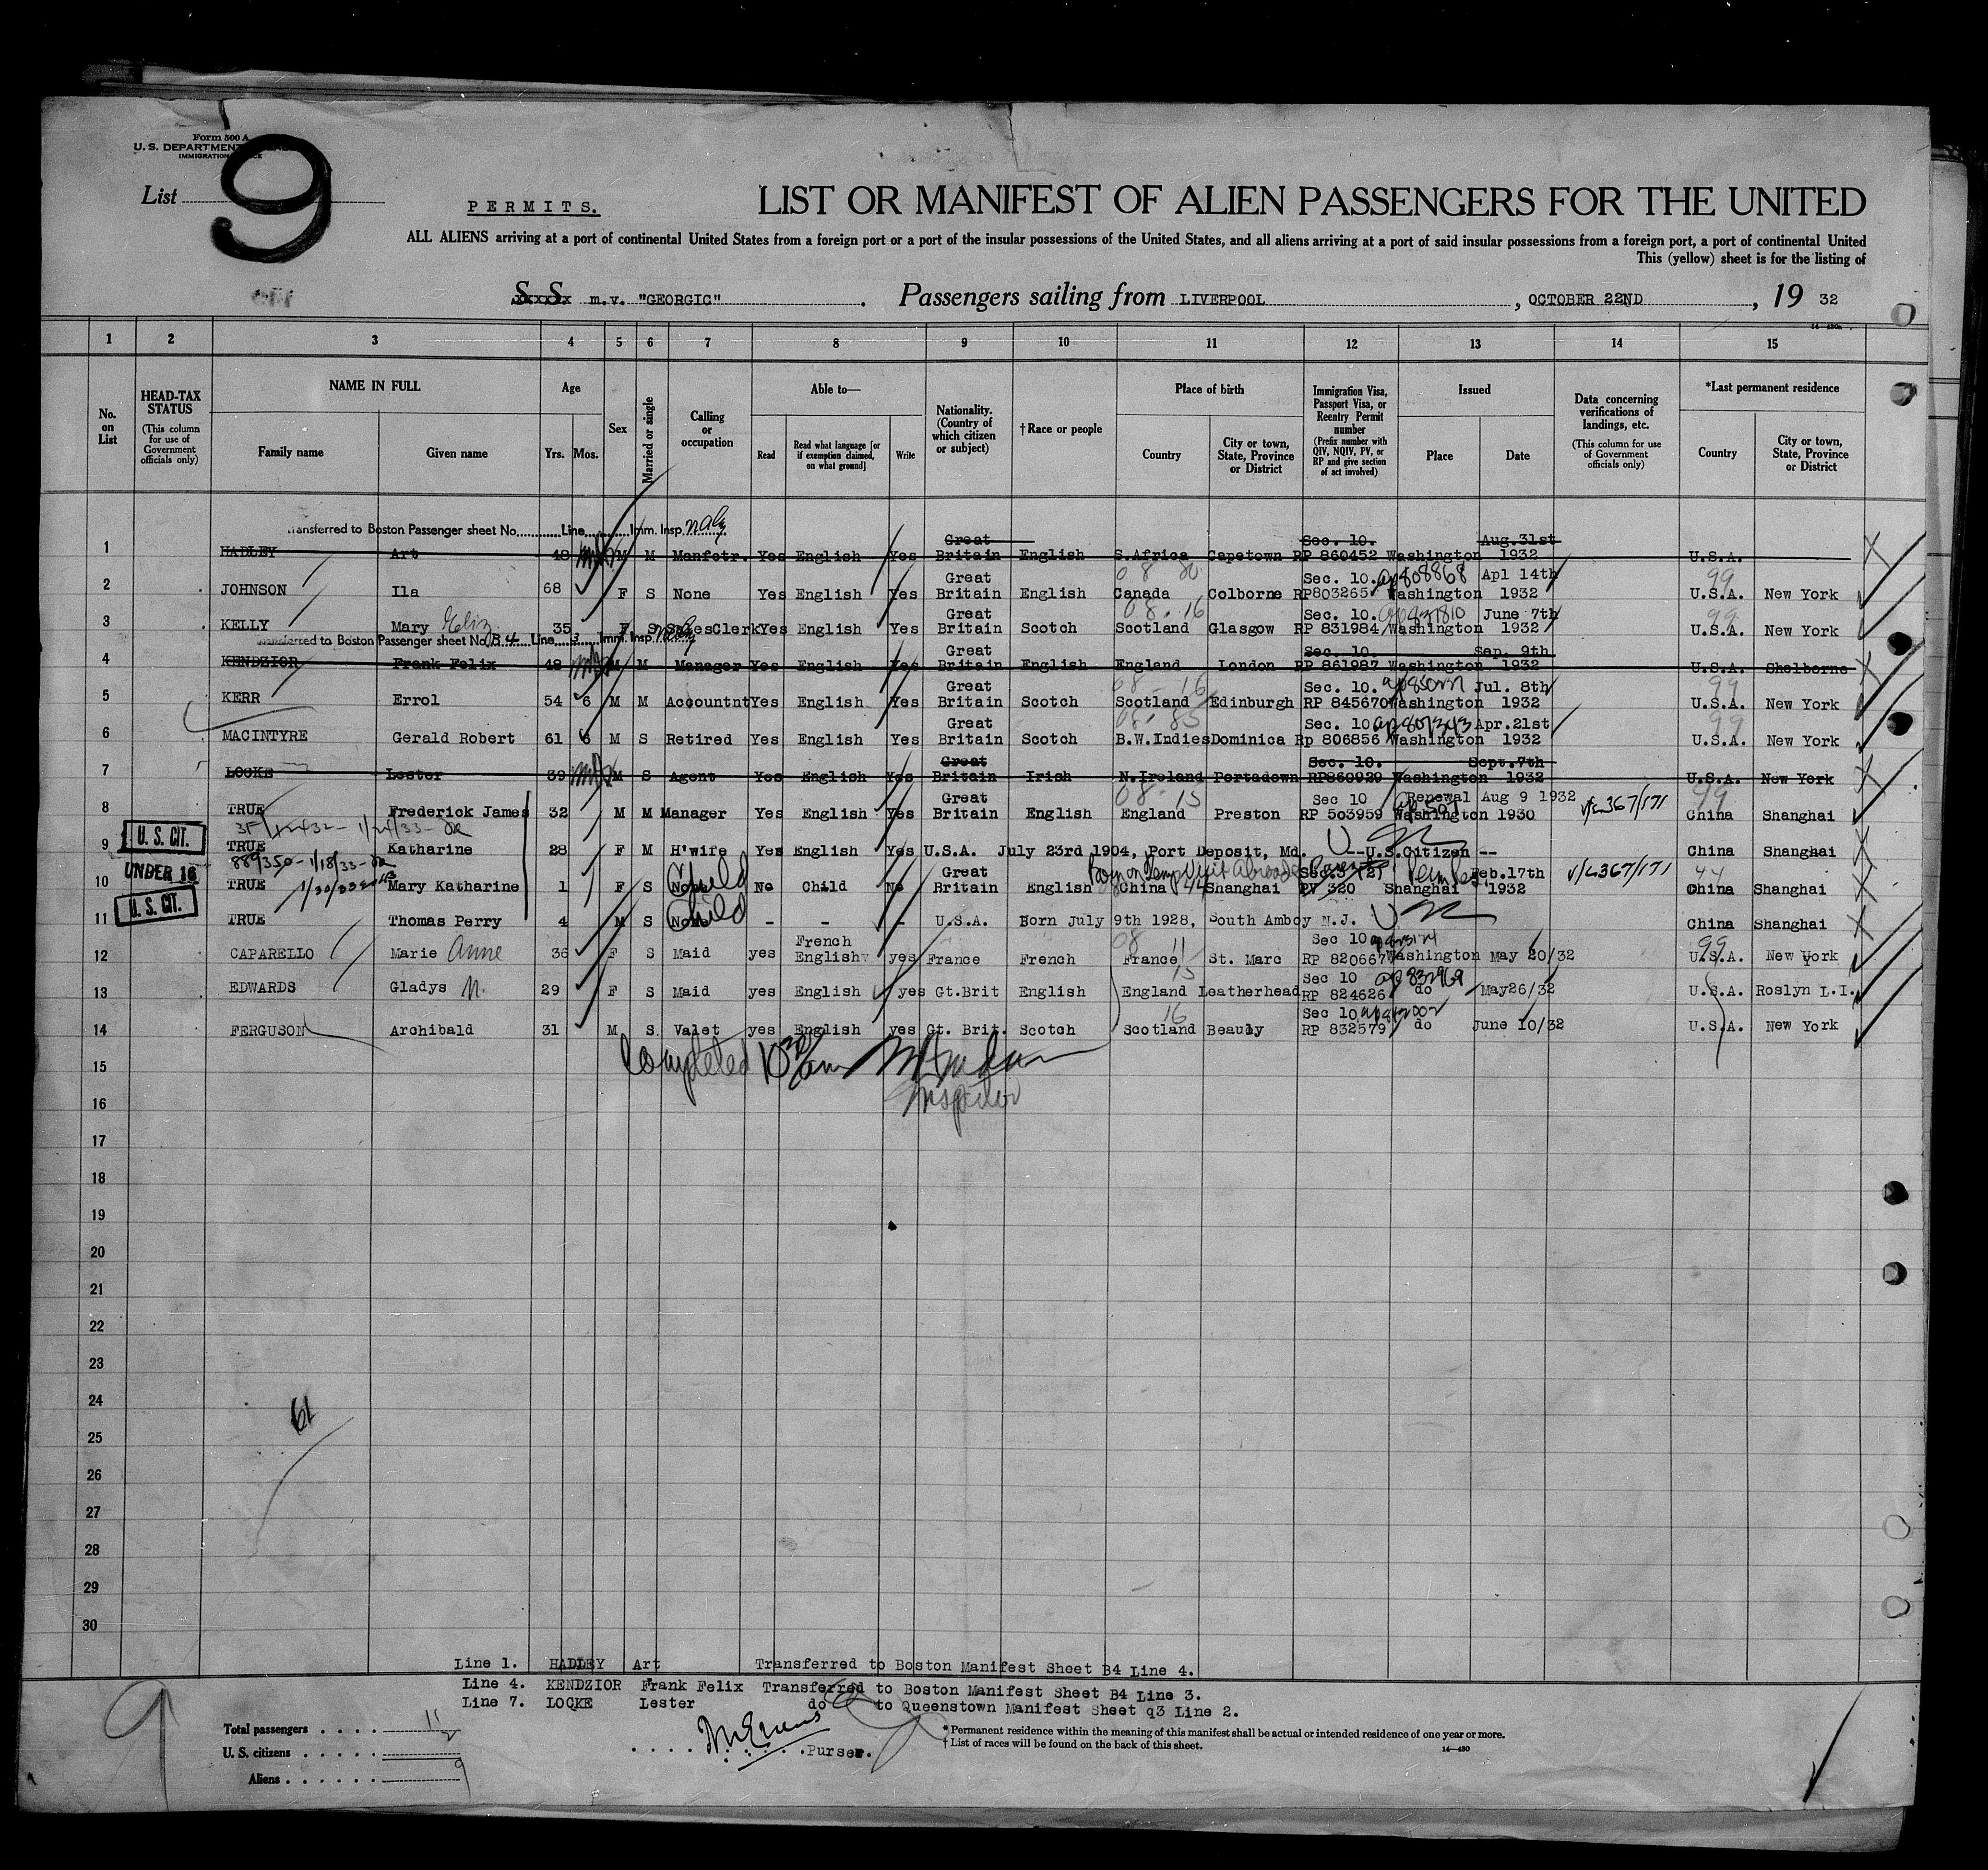 Form 500 A
U. S. DEPARTMENT
IMMIGRATION
List 9
PERMITS.
LIST OR MANIFEST OF ALIEN PASSENGERS FOR THE UNITED
ALL ALIENS arriving at a port of continental United States from a foreign port or a port of the insular possessions of the United States, and all aliens arriving at a port of said insular possessions from a foreign port, a port of continental United
This (yellow) sheet is for the listing of
S. S. m.v. "GEORGIC" . Passengers sailing from LIVERPOOL , OCTOBER 22ND , 19 32
14—430a
1 2 3 4 5 6 7 8 9 10 11 12 13 14 15
No. on List
HEAD-TAX STATUS (This column for use of Government officials only)
NAME IN FULL Family name Given name
Age Yrs. Mos.
Sex
Married or single
Calling or occupation
Able to— Read Read what language [or if exemption claimed, on what ground] Write
Nationality. (Country of which citizen or subject)
†Race or people
Place of birth Country City or town, State, Province or District
Immigration Visa, Passport Visa, or Reentry Permit number (Prefix number with QIV, NQIV, PV, or RP and give section of act involved)
Issued Place Date
Data concerning verifications of landings, etc. (This column for use of Government officials only)
*Last permanent residence Country City or town, State, Province or District
Transferred to Boston Passenger sheet No. Line Imm. Insp.
1 HADLEY Art 48 M M Manfctr. Yes English Yes Great Britain English S.Africa Capetown Sec. 10. RP 860452 Washington Aug.31st 1932 U.S.A.
2 JOHNSON Ila 68 F S None Yes English Yes Great Britain English Canada Colborne Sec. 10. RP803265 ap808868 Washington Apl 14th 1932 99 U.S.A. New York
3 KELLY Mary Eliz. 35 F S SalesClerk Yes English Yes Great Britain Scotch 08.16 Scotland Glasgow Sec. 10. RP 831984 Washington June 7th 1932 99 U.S.A. New York
Transferred to Boston Passenger sheet No. B4 Line 3 Imm. Insp.
4 KENDZIOR Frank Felix 48 M M Manager Yes English Yes Great Britain English England London Sec. 10. RP 861987 Washington Sep. 9th 1932 U.S.A. Shelborne
5 KERR Errol 54 6 M M Accountnt Yes English Yes Great Britain Scotch 08-16 Scotland Edinburgh Sec. 10. RP 845670 Washington Jul. 8th 1932 99 U.S.A. New York
6 MACINTYRE Gerald Robert 61 6 M S Retired Yes English Yes Great Britain Scotch 08-85 B.W.Indies Dominica Sec. 10 Rp 806856 ap801343 Washington Apr.21st 1932 99 U.S.A. New York
7 LOCKE Lester 39 M S Agent Yes English Yes Great Britain Irish N.Ireland Portadown Sec. 10. RP860929 Washington Sept.7th 1932 U.S.A. New York
8 TRUE Frederick James 32 M M Manager Yes English Yes Great Britain English 08-15 England Preston Sec 10 RP 503959 Renewal Aug 9 1932 Washington 1930 V/L367/171 China Shanghai
U. S. CIT.
9 TRUE Katharine 28 F M H'wife Yes English Yes U.S.A. July 23rd 1904, Port Deposit, Md. --U.S.Citizen -- China Shanghai
889350-1/18/33
UNDER 16
10 TRUE Mary Katharine 1 F S None Child No Child No Great Britain English China 44 Shanghai PV 320 Shanghai Feb.17th 1932 V/L367/171 44 China Shanghai
U. S. CIT.
11 TRUE Thomas Perry 4 M S None Child - - - U.S.A. Born July 9th 1928, South Amboy N.J. China Shanghai
12 CAPARELLO Marie Anne 36 F S Maid yes French English yes France French 08 11 France St. Marc Sec 10 RP 820667 Washington May 20/32 99 U.S.A. New York
13 EDWARDS Gladys N. 29 F S Maid yes English yes Gt.Brit English 15 England Leatherhead Sec 10 RP 824626 ap832969 do May26/32 U.S.A. Roslyn L.I.
14 FERGUSON Archibald 31 M S. Valet yes English yes Gt. Brit. Scotch 16 Scotland Beauly Sec 10 RP 832579 do June 10/32 U.S.A. New York
15 Completed 10 30 am
16 Inspector
17
18
19
20
21
22
23
24 61
25
26
27
28
29
30
Line 1. HADLEY Art Transferred to Boston Manifest Sheet B4 Line 4.
Line 4. KENDZIOR Frank Felix Transferred to Boston Manifest Sheet B4 Line 3.
Line 7. LOCKE Lester do to Queenstown Manifest Sheet q3 Line 2.
9
Total passengers . . . . 11
U. S. citizens . . . . . 2
Aliens . . . . . . 9
Purser.
* Permanent residence within the meaning of this manifest shall be actual or intended residence of one year or more.
† List of races will be found on the back of this sheet.
14—430